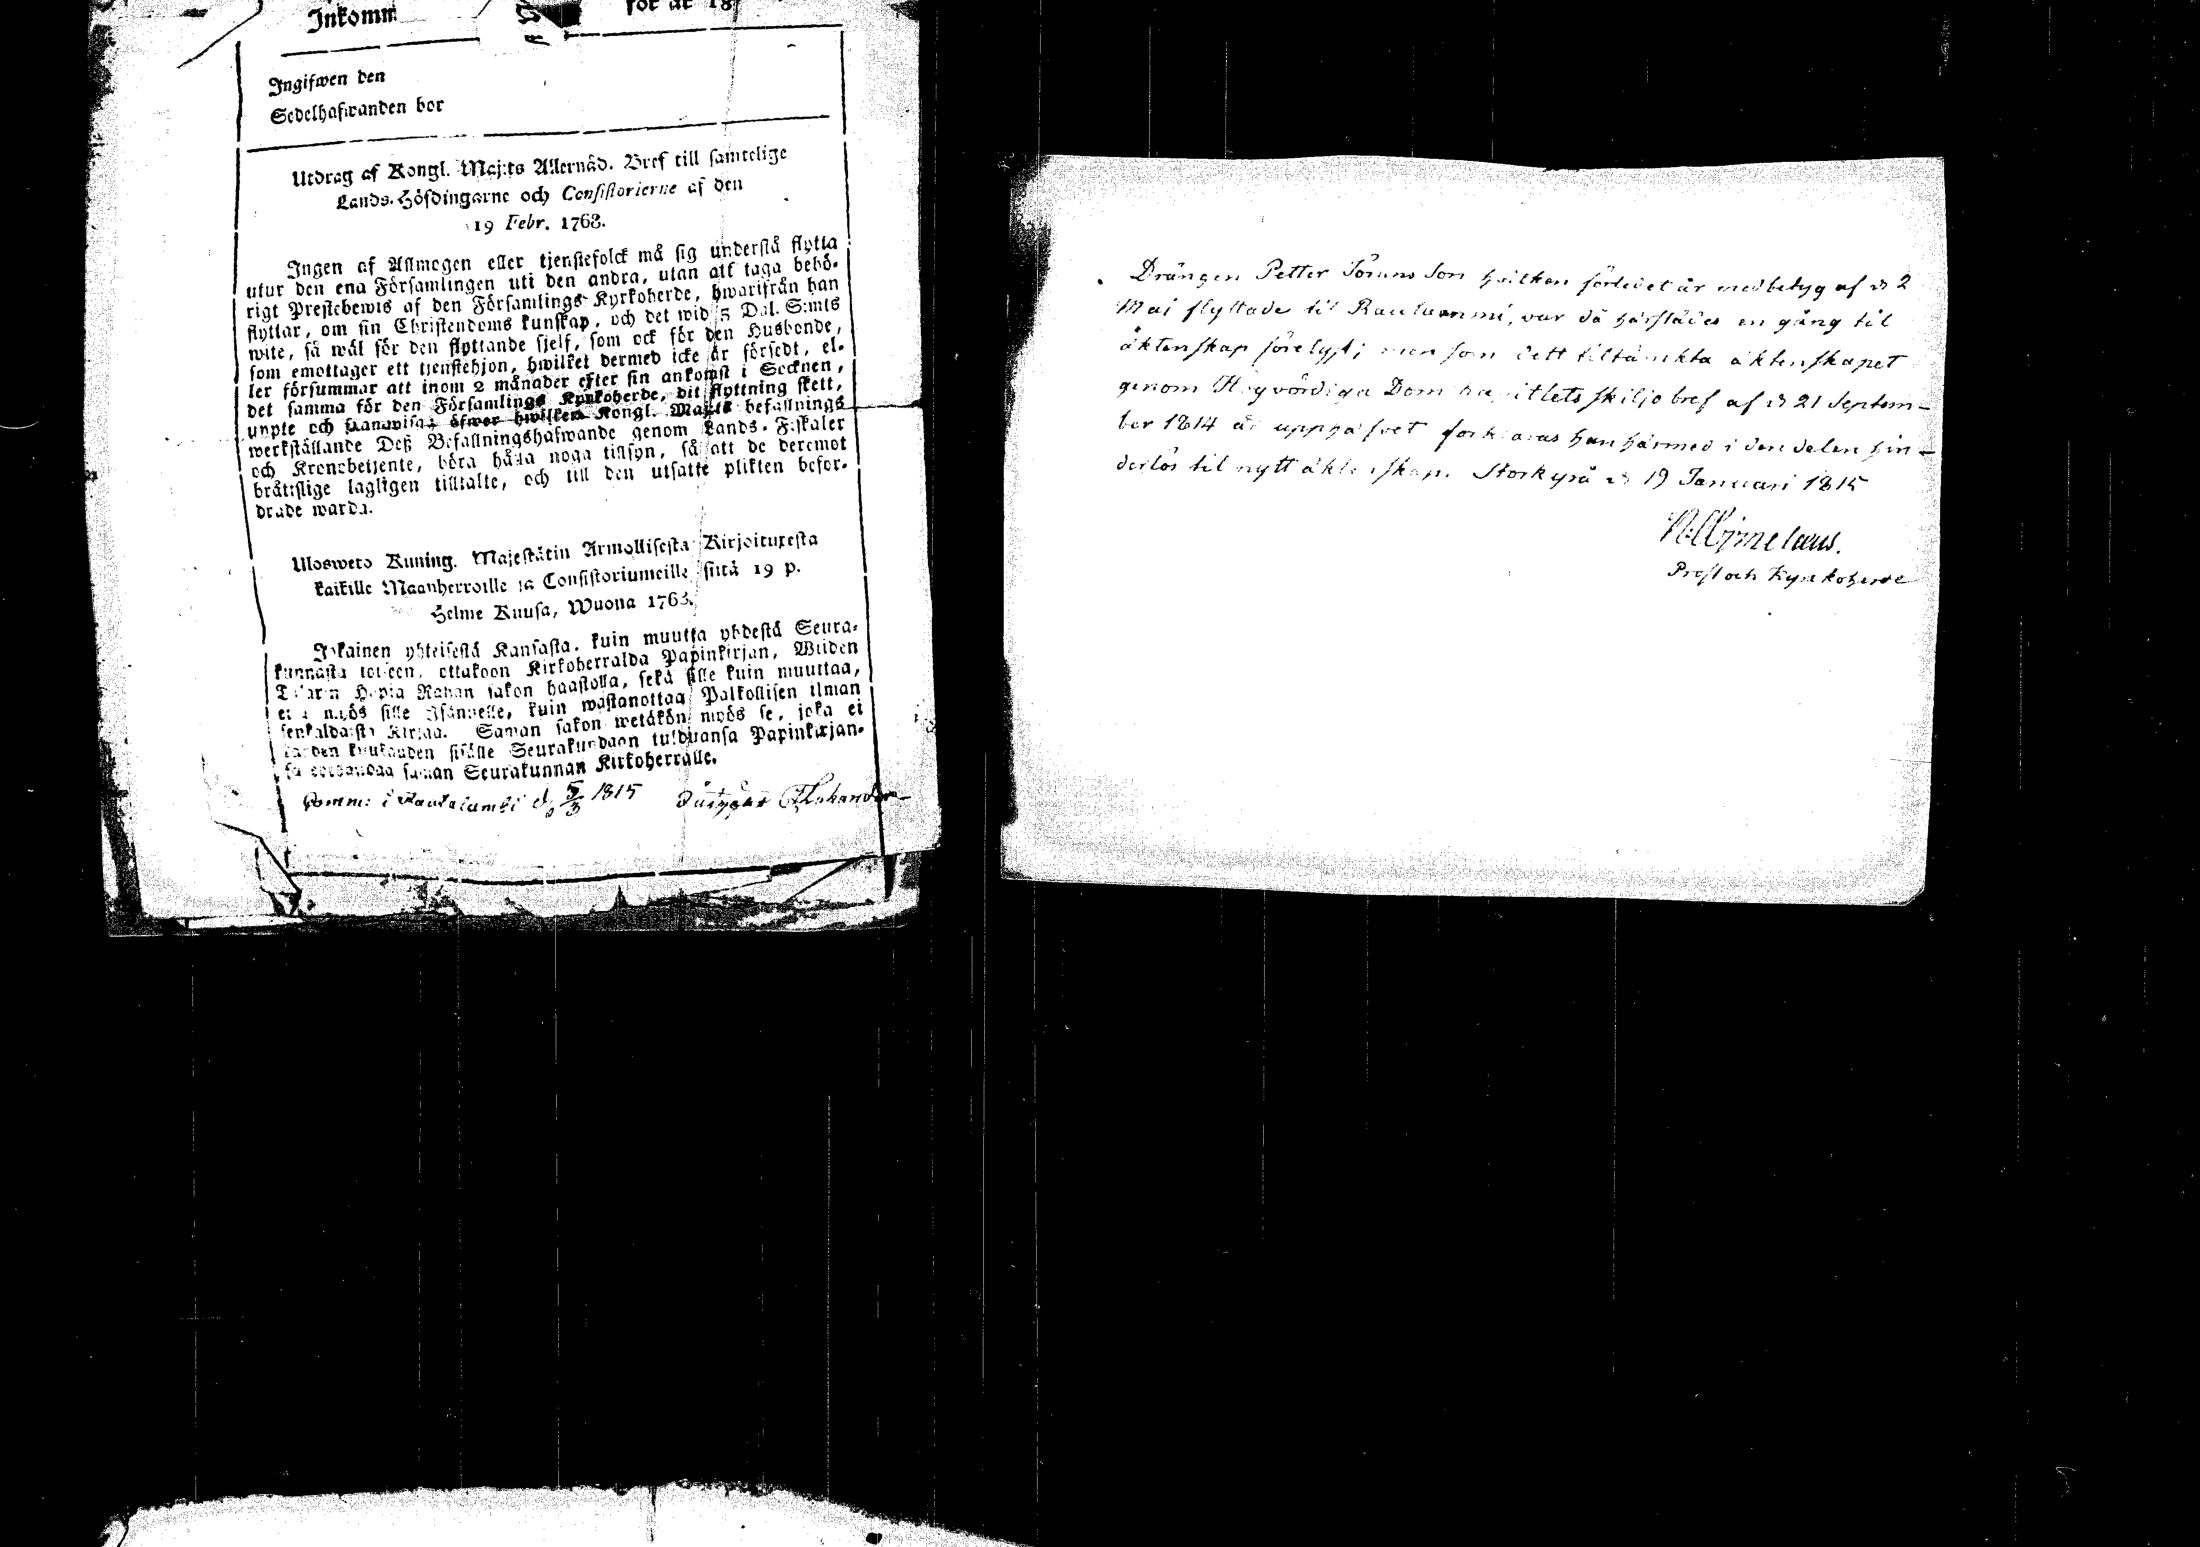 Inkomm för år 18
Ingifwen den
Sedelhafwanden bor
Utdrag af Kongl. Maj:ts Allernåd. Bref till samtelige
Lands-Höfdingarne och Consistorierne af den
19 Febr. 1768.
Ingen af Allmogen eller tjenstefolck må sig understå flytta
utur den ena Församlingen uti den andra, utan att taga behö-
rigt Prestebewis af den Församlings Kyrkoherde, hwarifrån han
flyttar, om sin Christendoms kunskap, och det wid 5 Dal. S:mts
wite, så wäl för den flyttande sjelf, som ock för den Husbonde,
som emottager ett tjenstehjon, hwilket dermed icke är försedt, el-
ler försummar att inom 2 månader efter sin ankomst i Socknen,
det samma för den Församlings Kyrkoherde, dit flyttning skett,
upte och framwisa; öfwer hwilken Kongl. Maj:ts befallnings
werkställande Deß Befallningshafwande genom Lands-Fiskaler
och Kronobetjente, böra hålla noga tillsyn, så att de deremot
bråtslige lagligen tilltalte, och till den utsatte plikten befor-
drade warda.
Ulosweto Kuning. Majestätin Armollisesta Kirjoituxesta
kaikille Maanherroille ja Consistoriumeille siitä 19 p.
Helme Kuusa, Wuona 1763.
Jokainen yhteisestä Kansasta, kuin muutta yhdestä Seura-
kunnasta toiseen, ottakoon Kirkoherralda Papinkirjan, Wiiden
Talarin Hopia Rahan sakon haastolla, sekä sille kuin muuttaa,
että myös sille Isännelle, kuin wastanottaa Palkollisen ilman
senkaldaista Kirjaa. Saman sakon wetäkön myös se, joka ei
kahden kuukauden sisälle Seurakundaan tulduansa Papinkirjan-
sa edesandaa saman Seurakunnan Kirkoherralle.
Comm: i Rautalambi d. 5/3 1815
Drängen Petter Söruns Son hvilken förledet år med betyg af d 2
Mai flyttade til Rautalammi, var då härstädes en gång til
äktenskap förelyst; men som dett tiltänkta äktenskapet
genom Högvördiga Dom kapitlets skiljobref af d 21 Septem-
ber 1814 är upphäfvet förklaras han härmed i den delen hin-
derlös til nytt äktenskap. Storkyrå d 19 Januari 1815
Prost och Kyrkoherde